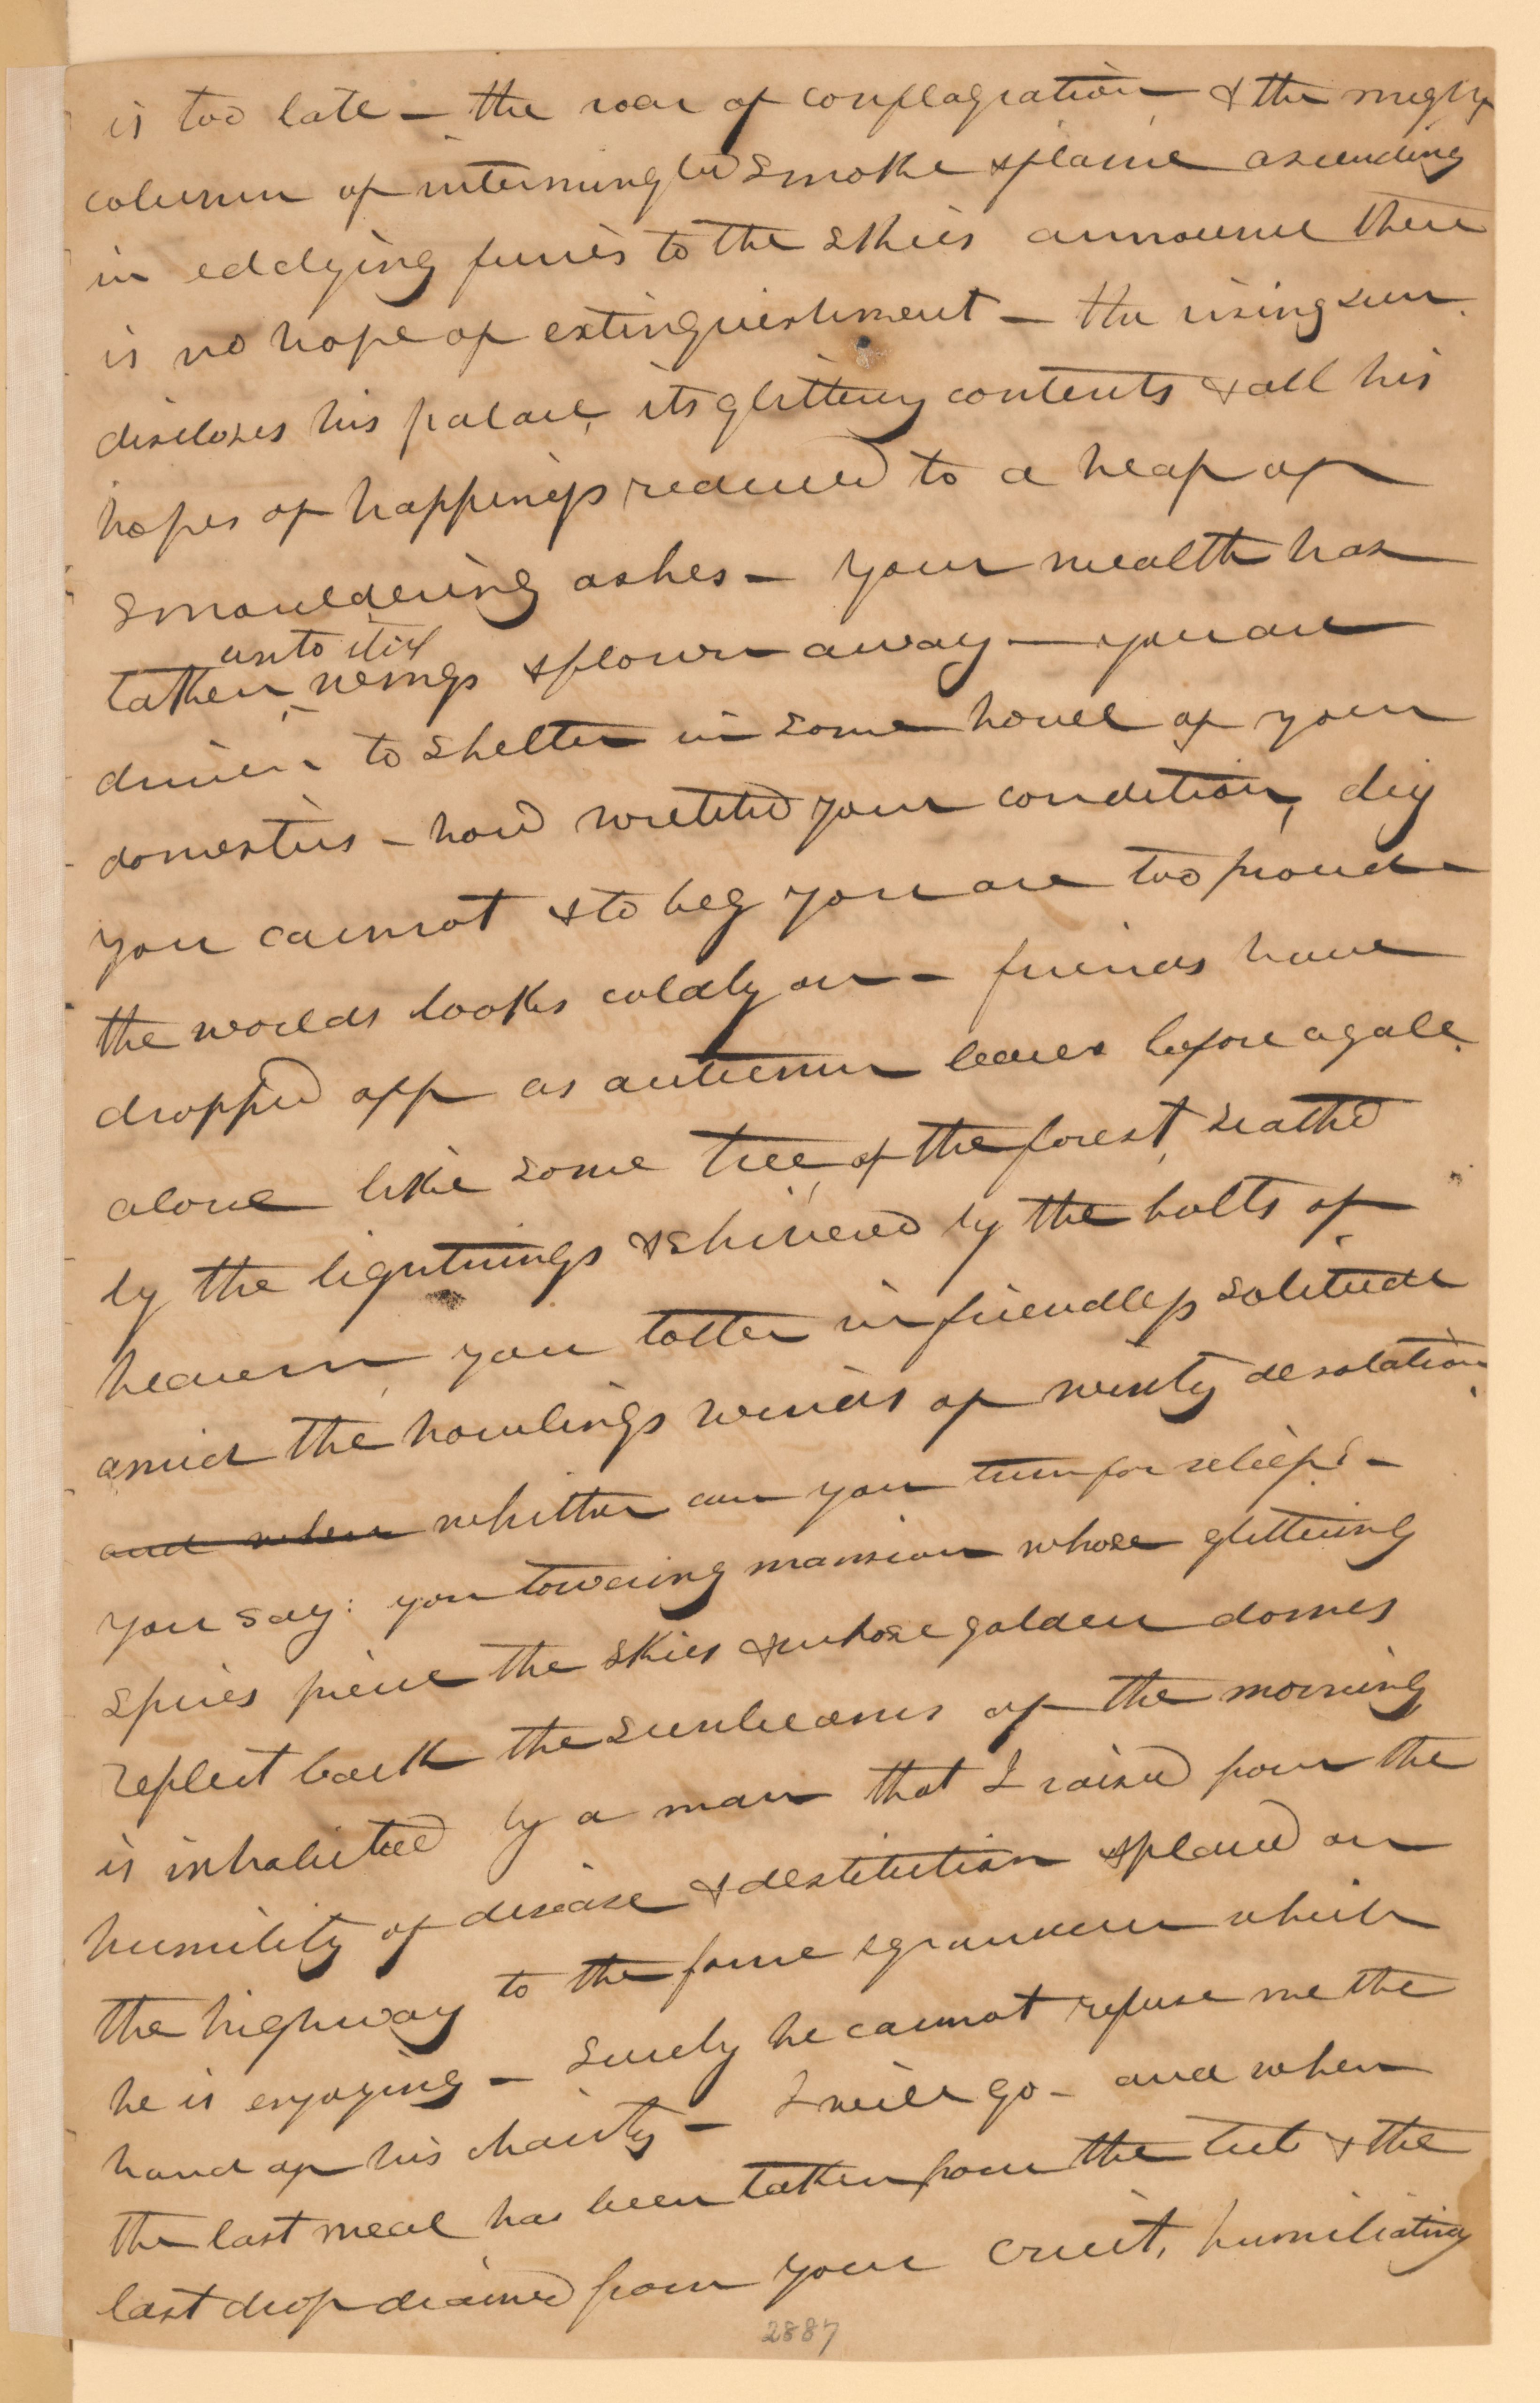 is too late – the roar of conflagration & the mighty
column of intermingled smoke & flame ascending
in eddying furies to the skies announce there
is no hope of extinguishment – the rising sun
discloses his palace, its glittering contents & all his
hopes of happiness reduced to a heap of
smouldering ashes – your wealth has
unto itself
taken wings & flown away – you are
driven to shelter in some hovel of your
domestics – how wretched your condition, dig
you cannot & to beg you are too proud –
the worlds looks coldly on – friends have
dropped off as autumn leaves before a gale
alone like some tree, of the forest, scathed
by the lightnings & shivered by the bolts of
heaven, you totter in friendless solitude
amid the howlings winds of winty desolation
and when whither can you turn for relief? –
you say: yon towering mansion whose glittering
spires pierce the skies & whose golden domes
reflect back the sunbeams of the morning
is inhabited by a man that I raised from the
humility of disease & destitution & placed on
the highway to the fame & grandeur which
he is enjoying – surely he cannot refuse me the
hand of his charity – I will go – and when
the last meal has been taken from the & the
last drop drained from your cruit, humiliating
2887